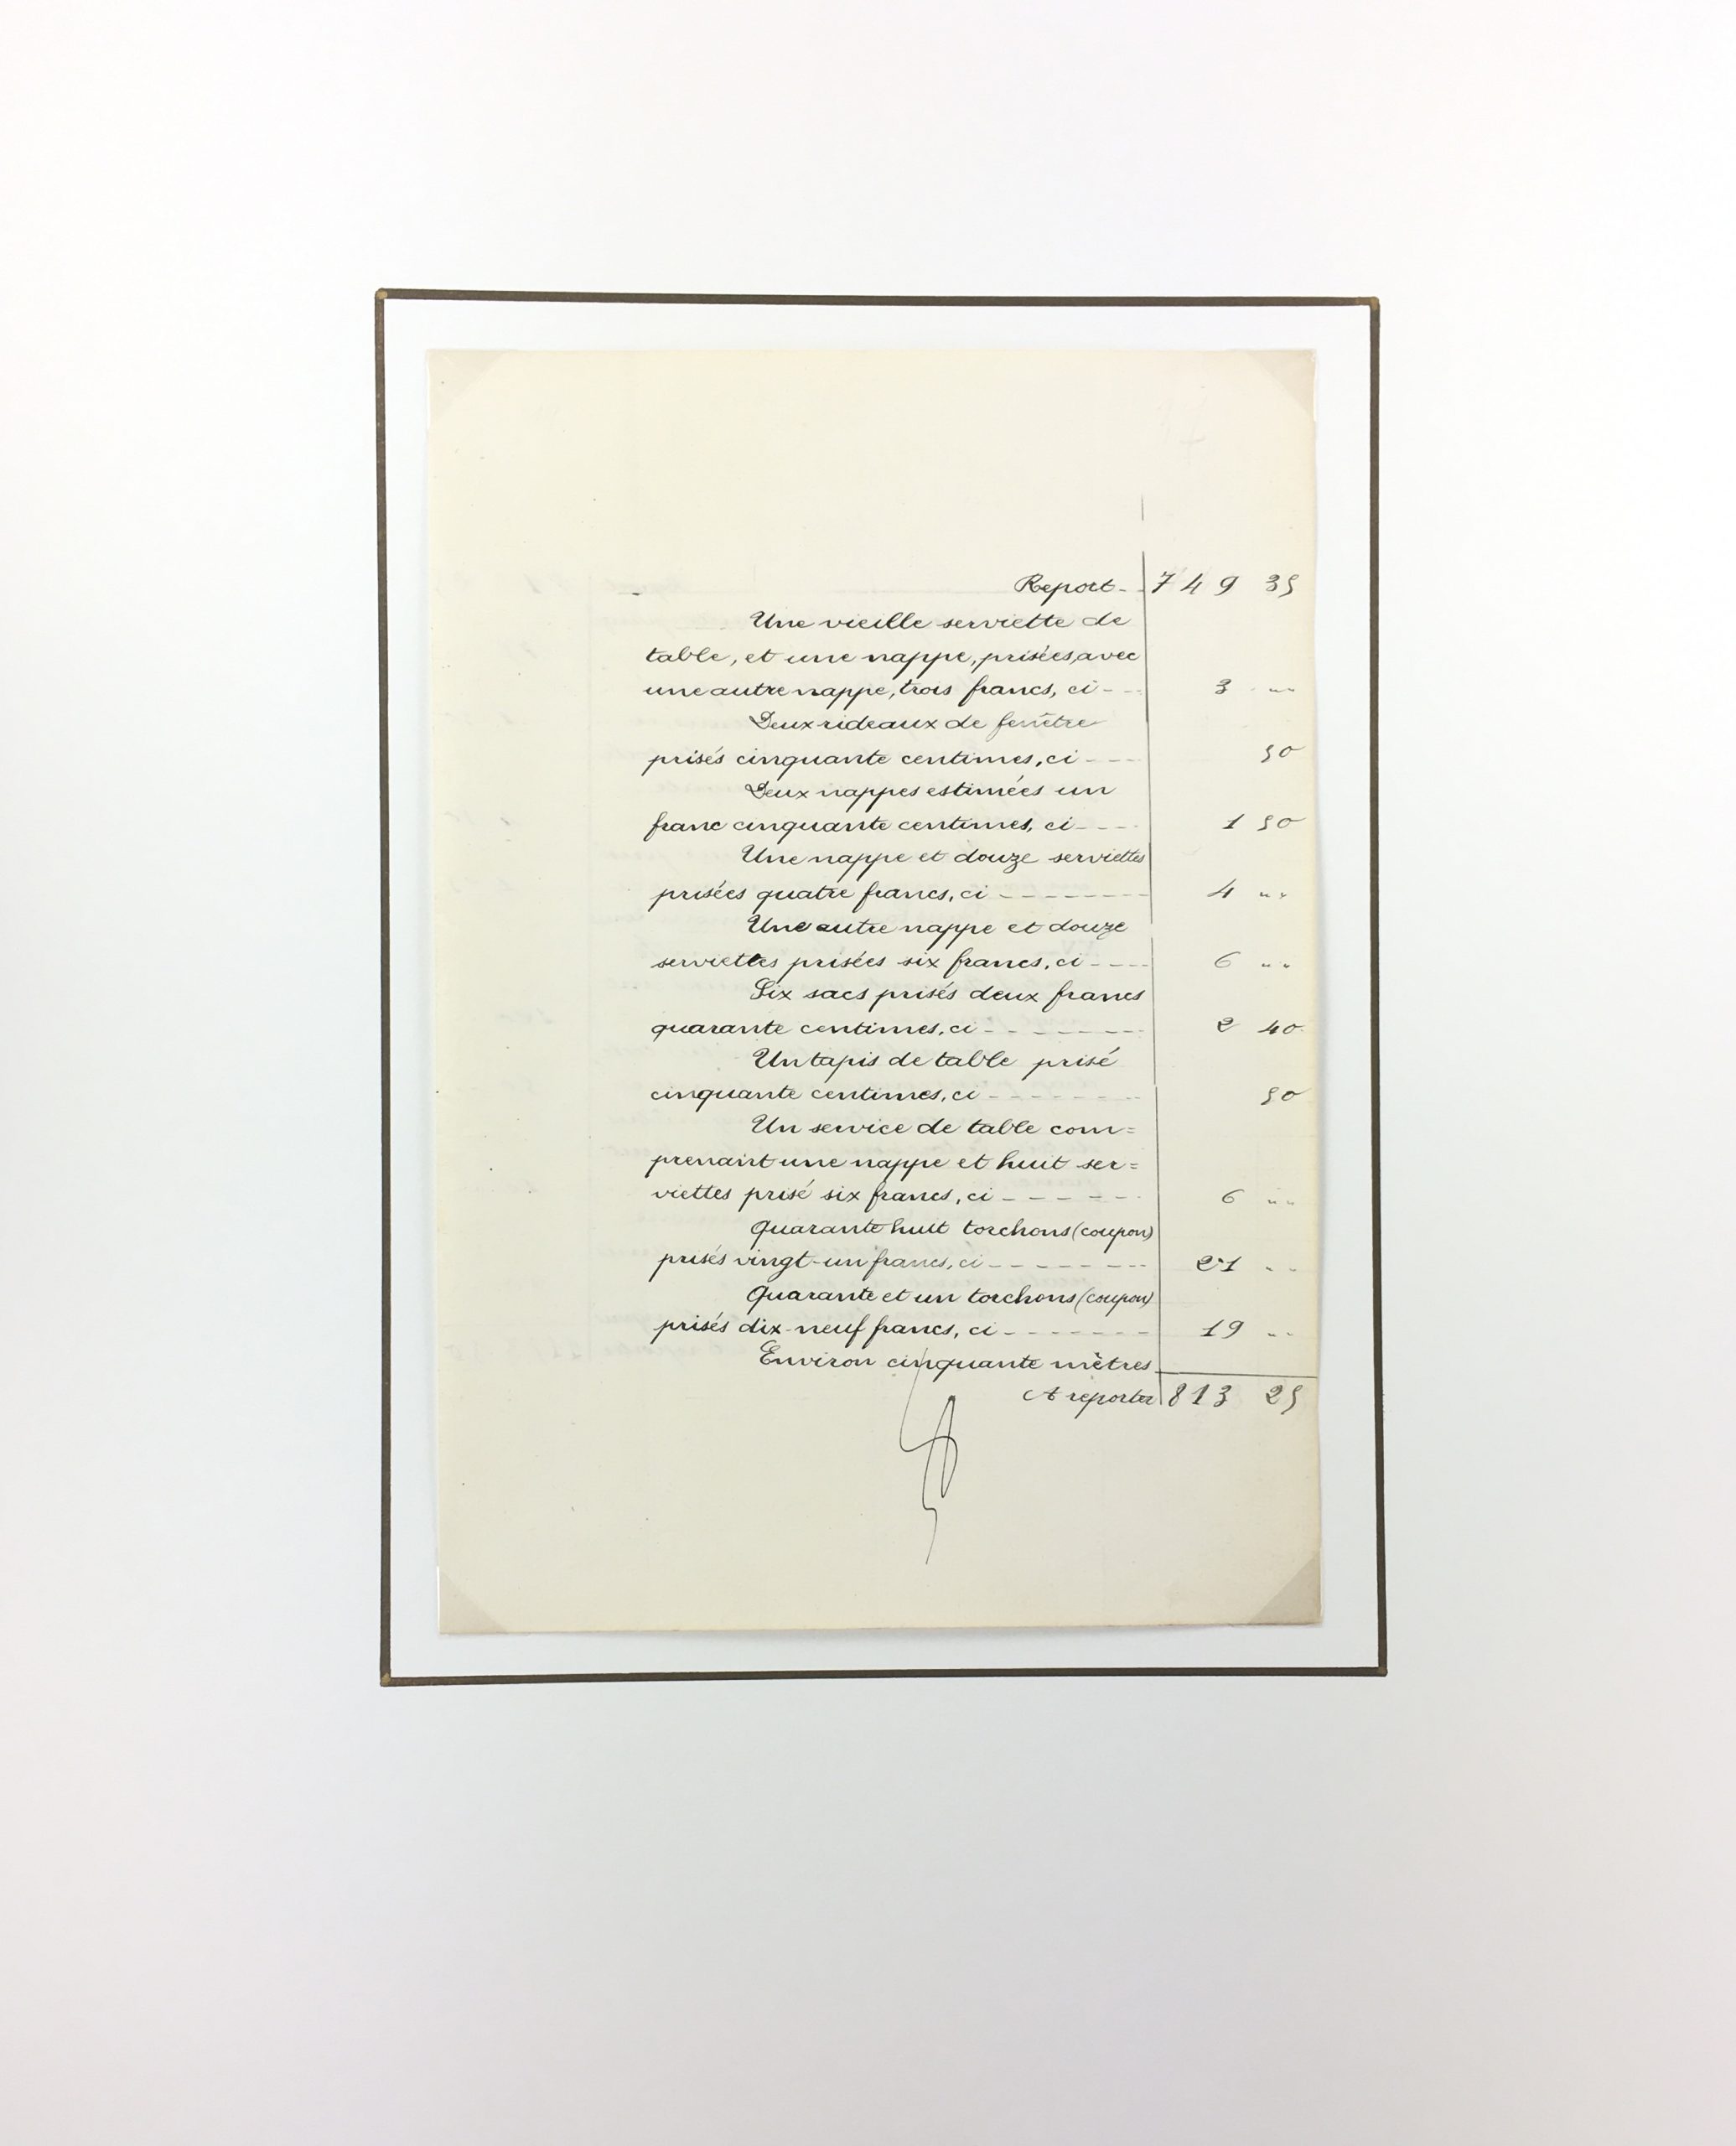 Report - - 749 35
Une vieille serviette de
table, et une nappe, prisées avec
une autre nappe, trois francs, ci - - - 3 " "
Deux rideaux de fenêtre
prisés cinquante centimes, ci - - - 50
Deux nappes estimées un
franc cinquante centimes, ci - - - - 1 50
Une nappe et douze serviettes
prisées quatre francs, ci - - - - - - - - 4 " "
Une autre nappe et douze
serviettes prisées six francs, ci - - - - 6 " "
Six sacs prisés deux francs
quarante centimes, ci - - - - - - - - 2 40
Un tapis de table prisé
cinquante centimes, ci - - - - - - - - 50
Un service de table com=
prenant une nappe et huit ser=
viettes prisé six francs, ci - - - - - - 6 " "
Quarante huit torchons (coupon)
prisés vingt-un francs, ci - - - - - - - 21 " "
Quarante et un torchons (coupon)
prisés dix-neuf francs, ci - - - - - - - 19 " "
Environ cinquante mètres
A reporter 813 25